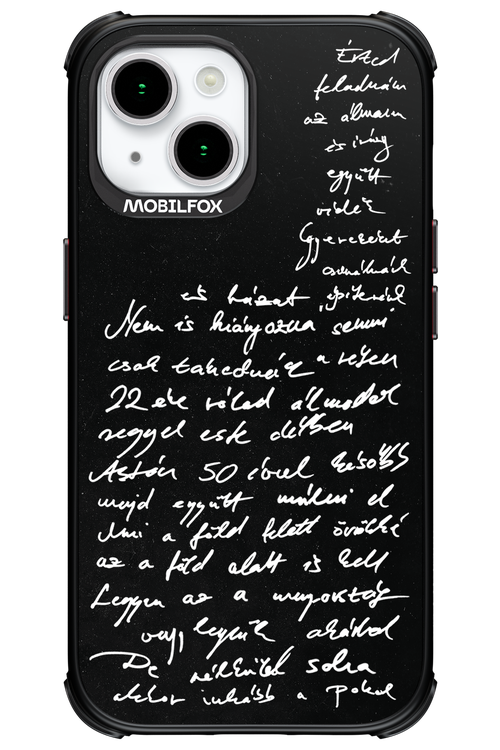 MOBILFOX
Érted
feladnám
az álmaim
és írnq
együtt
vidék
Gyerekeint
csinálnánk
és házat építenénk
Nem is hiányozna semmi
csak takednánk a réten
22 éve rólad álmodok
reggel este délben
Aztán 50 évvel később
majd együtt múlni el
Ami a föld felett örökké
az a föld alatt is kell
Legyen az a mennyország
vagy legyünk akárhol
De nélküled soha
akkor inkább a pokol